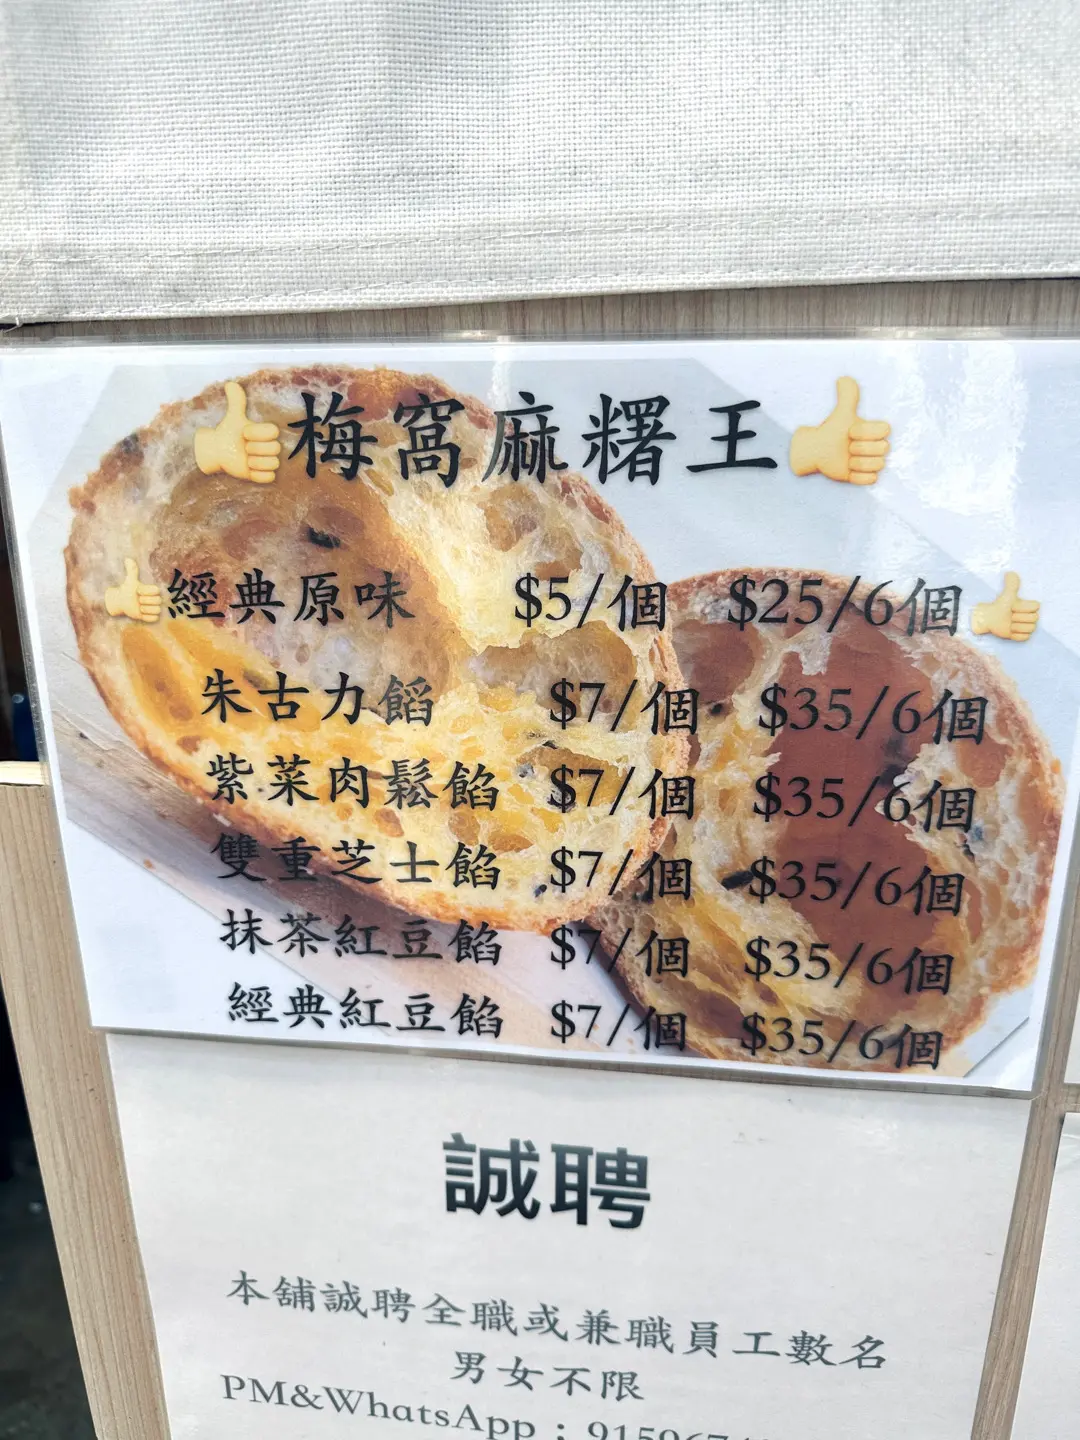 👍梅窩麻糬王👍
👍經典原味 $5/個 $25/6個👍
朱古力餡 $7/個 $35/6個
紫菜肉鬆餡 $7/個 $35/6個
雙重芝士餡 $7/個 $35/6個
抹茶紅豆餡 $7/個 $35/6個
經典紅豆餡 $7/個 $35/6個
誠聘
本舖誠聘全職或兼職員工數名
男女不限
PM&WhatsApp：